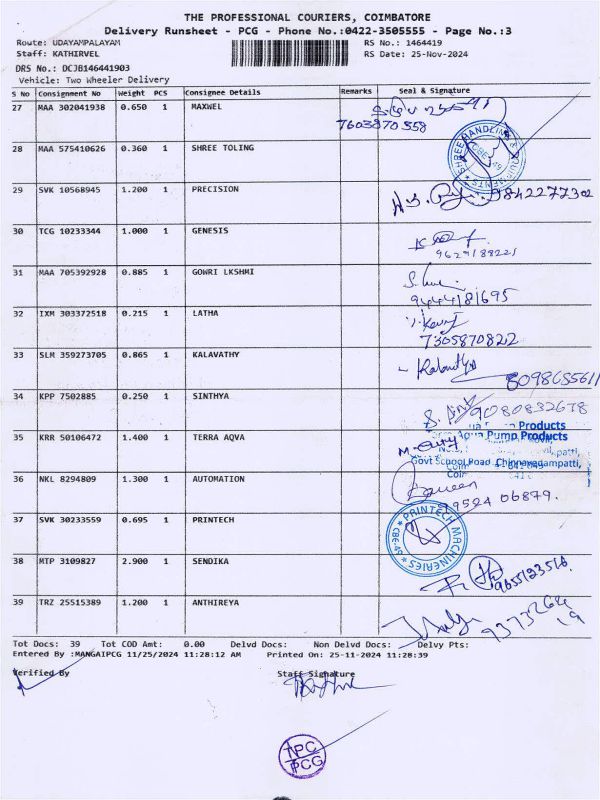 THE PROFESSIONAL COURIERS, COIMBATORE
Delivery Runsheet - PCG - Phone No.:0422-3505555 - Page No.:3
Route: UDAYAMPALAYAM RS No.: 1464419
Staff: KATHIRVEL RS Date: 25-Nov-2024
DRS No.: DCJB146441903
Vehicle: Two Wheeler Delivery
S No Consignment No Weight PCS Consignee Details Remarks Seal & Signature
27 MAA 302041938 0.650 1 MAXWEL
7603870558
28 MAA 575410626 0.360 1 SHREE TOLING
SHREE HANDLING &
29 SVK 10568945 1.200 1 PRECISION 9842277302
30 TCG 10233344 1.000 1 GENESIS
9629188221
31 MAA 705392928 0.885 1 GOWRI LKSHMI
9444181695
32 IXM 303372518 0.215 1 LATHA
7305870822
33 SLM 359273705 0.865 1 KALAVATHY
8098655611
34 KPP 7502885 0.250 1 SINTHYA
9080832678
35 KRR 50106472 1.400 1 TERRA AQVA
Aqua Pump Products
Govt School Road, Chinnavedampatti,
36 NKL 8294809 1.300 1 AUTOMATION
99524 06879.
37 SVK 30233559 0.695 1 PRINTECH
PRINTECH MACHINERIES
38 MTP 3109827 2.900 1 SENDIKA
9655123516.
39 TRZ 25515389 1.200 1 ANTHIREYA
Tot Docs: 39 Tot COD Amt: 0.00 Delvd Docs: Non Delvd Docs: Delvy Pts:
Entered By :MANGAIPCG 11/25/2024 11:28:12 AM Printed On: 25-11-2024 11:28:39
Verified By Staff Signature
TPC
PCG